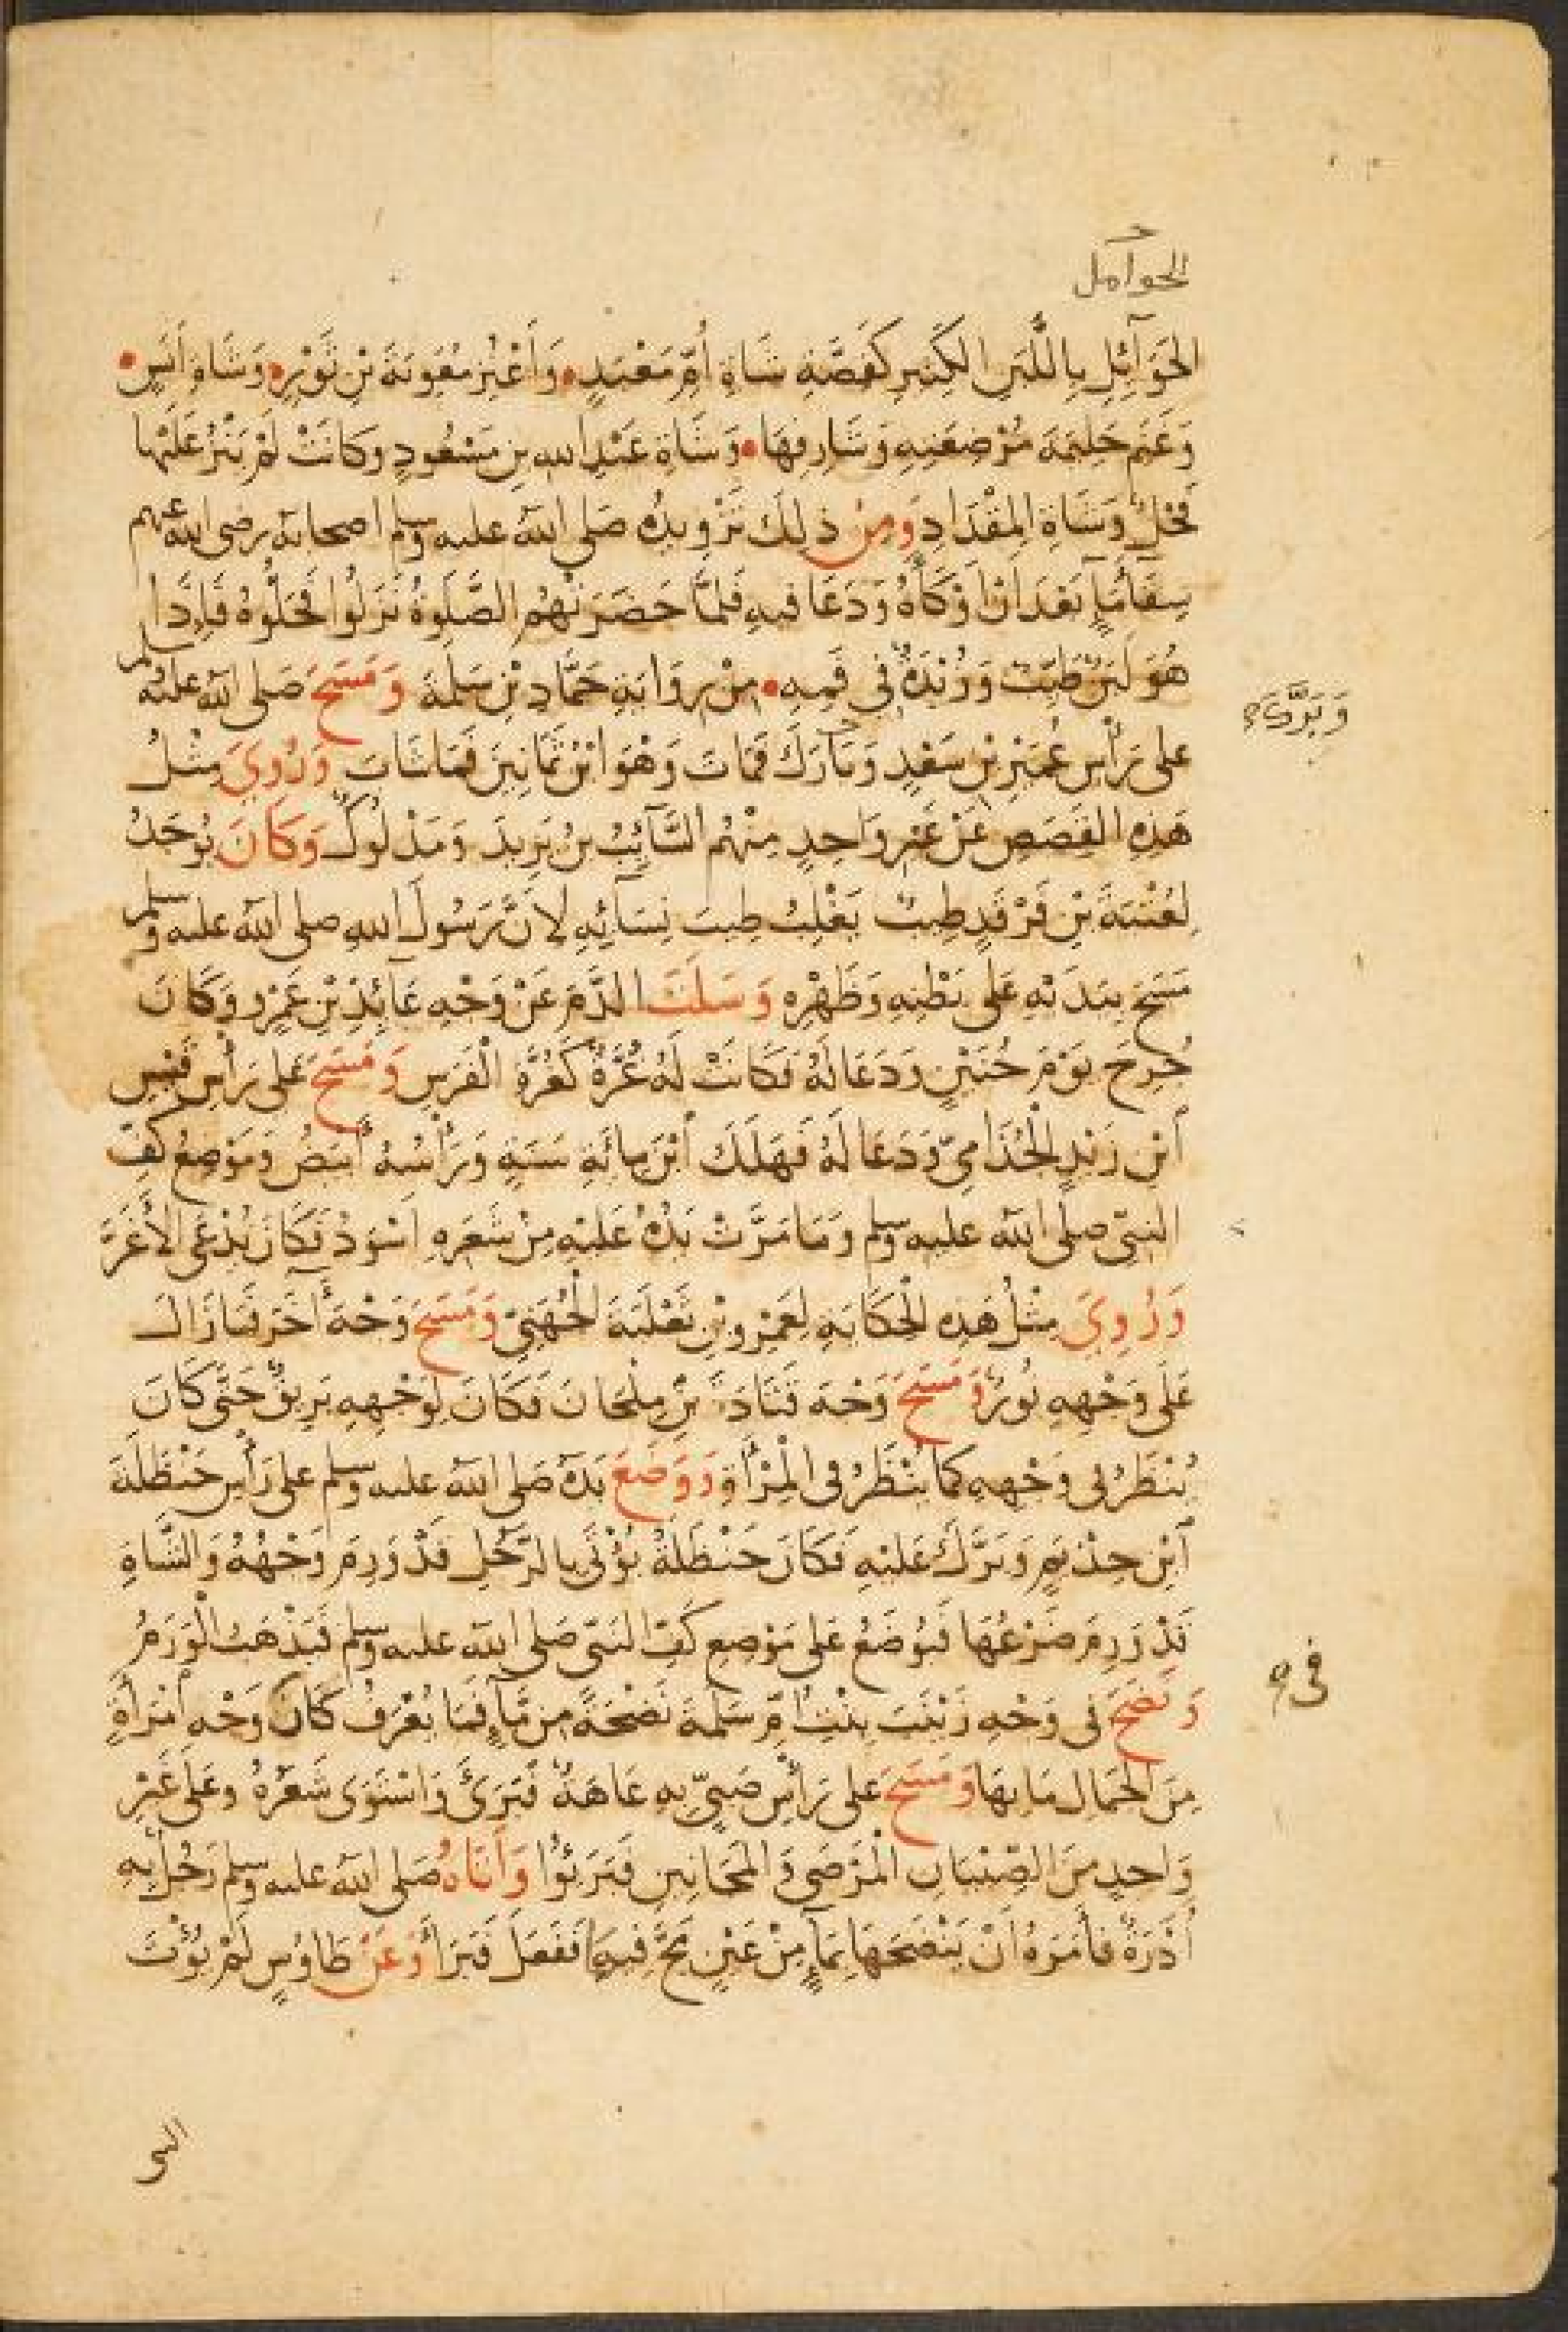 الحوامل
الحَوَآئِلِ بِاللَّبَنِ الكَثِيرِ كَقِصَّةِ شَاةِ أُمِّ مَعْبَدٍ وَأَعْنُزِ مُعَوِيَةَ بْنِ ثَوْرٍ وَشَاةِ أَنَسٍ
وَغَنَمِ حَلِيمَةَ مُرْضِعَتِهِ وَشَارِفِهَا وَشَاةِ عَبْدِ اللهِ بنِ مَسْعُودٍ وَكَانَتْ لَمْ يَنْزُ عَلَيْهَا
فَحْلٌ وَشَاةِ المِقْدَادِ وَمِنْ ذلِكَ تَزْوِيدُهُ صَلى اللهُ عليه وسلم اصحابَهُ رضى الله عنهم
سِقَآءَ مَآءٍ بَعْدَ أَنْ أَوْكَأَهُ وَدَعَا فيهِ فَلَمَّا حَضَرَتْهُمُ الصَّلَوةُ نَزَلُوا فَحَلُّوهُ فَإِذَا
هُوَ لَبَنٌ طَيِّبٌ وَزُبْدَةٌ فِي فَمِهِ مِنْ رِوَايَةِ حَمَّادِ بْنِ سَلَمَةَ وَمَسَحَ صَلى الله عليه وسلم
على رَأْسِ عُمَيْرِ بْنِ سَعْدٍ وَبَارَكَ فَمَاتَ وَهْوَ ابْنُ ثَمَانِينَ فَمَا شَابَ وَرُوِيَ مِثْلُ
وَبَرَّكَ
هَذِهِ القِصَصِ عَنْ غَيْرِ وَاحِدٍ مِنْهُم السَّآئِبُ بنُ يَزِيدَ وَمَدْلُوكٌ وَكَانَ يُوجَدُ
لِعُتْبَةَ بْنِ فَرْقَدٍ طِيبٌ يَغْلِبُ طِيبَ نِسَآئِهِ لأَنَّ رَسُولَ اللهِ صلى الله عليه وسلم
مَسَحَ بِيَدَيْهِ عَلَى بَطْنِهِ وَظَهْرِهِ وَسَلَتَ الدَّمَ عَنْ وَجْهِ عَآئِذِ بْنِ عَمْرٍو وَكَانَ
جُرِحَ يَوْمَ حُنَيْنٍ وَدَعَا لَهُ فَكَانَتْ لَهُ غُرَّةٌ كَغُرَّةِ الْفَرَسِ وَمَسَحَ عَلى رَأْسِ قَيْسِ
ابْنِ زَيْدٍ الْجُذَامِيِّ وَدَعَا لَهُ فَهَلَكَ ابْنَ مِائَةِ سَنَةٍ وَرَأْسُهُ أَبْيَضُ وَمَوْضِعُ كَفِّ
النبيّ صلى الله عليه وسلم وَمَا مَرَّتْ يَدُهُ عَلَيْهِ مِنْ شَعَرِهِ اسْوَدُ فَكَانَ يُدْعَى الأَغَرَّ
وَرُوِيَ مِثْلُ هَذِهِ الْحِكَايَةِ لِعَمْرِو بْنِ ثَعْلَبَةَ الْجُهَنِيِّ وَمَسَحَ وَجْهَ آخَرَ فَمَا زَالَ
عَلَى وَجْهِهِ نُورٌ وَمَسَحَ وَجْهَ قَتَادَةَ بْنِ مِلْحَانَ فَكَانَ لِوَجْهِهِ بَرِيقٌ حَتَّى كَانَ
يُنْظَرُ فِى وَجْهِهِ كَمَا يُنْظَرُ فى المِرْآةِ وَوَضَعَ يَدَهُ صَلى اللهُ عليه وسلم على رَأْسِ حَنْظَلَةَ
ابْنِ حِذْيَمٍ وَبَرَّكَ عَلَيْهِ فَكَانَ حَنْظَلَةُ يُؤْتَى بِالرَّجُلِ قَدْ وَرِمَ وَجْهُهُ وَالشَّاةِ
قَدْ وَرِمَ ضَرْعُهَا فَيُوضَعُ على مَوْضِعِ كَفِّ النبى صَلى الله عليه وسلم فَيَذْهَبُ الْوَرَمُ
وَنَضَحَ فى وَجْهِ زَيْنَبَ بِنْتِ أُمِّ سَلَمَةَ نَضْحَةً مِن مَآءٍ فَمَا يُعْرَفُ كَانَ وَجْهِ امْرَأَةٍ
فى
مِنَ الْجَمَالِ مَا بِهَا وَمَسَحَ على رَأْسِ صَبِيٍّ بِهِ عَاهَةٌ فَبَرِئَ وَاسْتَوَى شَعَرُهُ وعَلَى غَيْرِ
وَاحِدٍ مِنَ الصِّبْيَانِ الْمَرْضَى وَالْمَجَانِينِ فَبَرَئُوا وَأَتَاهُ صَلى اللهُ عليه وسلم رَجُلٌ بِهِ
أُدْرَةٌ فَأَمَرَهُ انْ يَنْضَحَهَا بِمَآءٍ مِنْ عَيْنٍ مَجَّ فِيهَا فَفَعَلَ فَبَرَأَ وَعَنْ طَاوُسٍ لَمْ يُؤْتَ